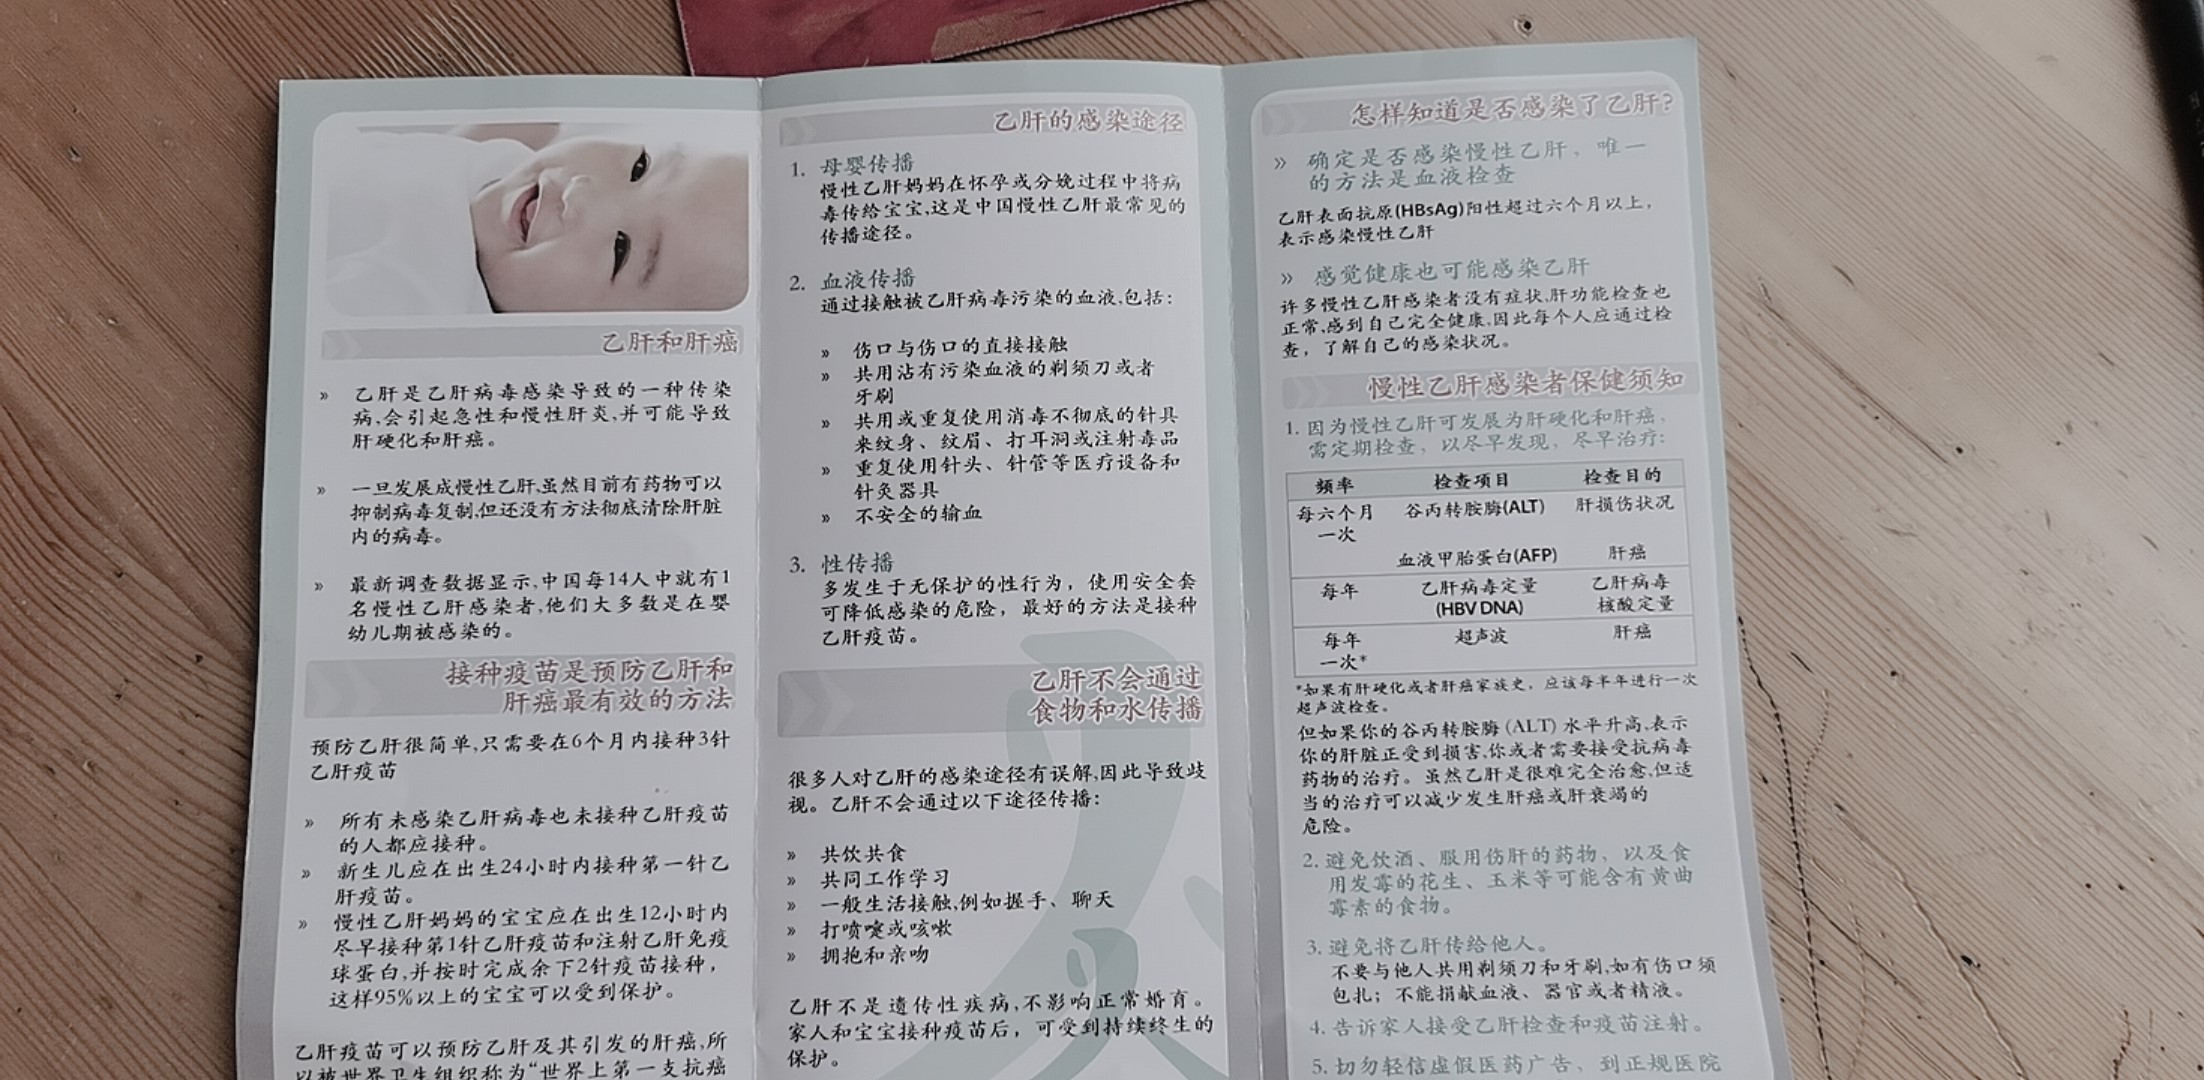 乙肝和肝癌
» 乙肝是乙肝病毒感染导致的一种传染
病,会引起急性和慢性肝炎,并可能导致
肝硬化和肝癌。
» 一旦发展成慢性乙肝,虽然目前有药物可以
抑制病毒复制,但还没有方法彻底清除肝脏
内的病毒。
» 最新调查数据显示,中国每14人中就有1
名慢性乙肝感染者,他们大多数是在婴
幼儿期被感染的。
接种疫苗是预防乙肝和
肝癌最有效的方法
预防乙肝很简单,只需要在6个月内接种3针
乙肝疫苗
» 所有未感染乙肝病毒也未接种乙肝疫苗
的人都应接种。
» 新生儿应在出生24小时内接种第一针乙
肝疫苗。
» 慢性乙肝妈妈的宝宝应在出生12小时内
尽早接种第1针乙肝疫苗和注射乙肝免疫
球蛋白,并按时完成余下2针疫苗接种，
这样95%以上的宝宝可以受到保护。
乙肝疫苗可以预防乙肝及其引发的肝癌,所
以被世界卫生组织称为“世界上第一支抗癌
乙肝的感染途径
1. 母婴传播
慢性乙肝妈妈在怀孕或分娩过程中将病
毒传给宝宝,这是中国慢性乙肝最常见的
传播途径。
2. 血液传播
通过接触被乙肝病毒污染的血液,包括：
» 伤口与伤口的直接接触
» 共用沾有污染血液的剃须刀或者
牙刷
» 共用或重复使用消毒不彻底的针具
来纹身、纹眉、打耳洞或注射毒品
» 重复使用针头、针管等医疗设备和
针灸器具
» 不安全的输血
3. 性传播
多发生于无保护的性行为，使用安全套
可降低感染的危险，最好的方法是接种
乙肝疫苗。
乙肝不会通过
食物和水传播
很多人对乙肝的感染途径有误解,因此导致歧
视。乙肝不会通过以下途径传播：
» 共饮共食
» 共同工作学习
» 一般生活接触,例如握手、聊天
» 打喷嚏或咳嗽
» 拥抱和亲吻
乙肝不是遗传性疾病,不影响正常婚育。
家人和宝宝接种疫苗后，可受到持续终生的
保护。
怎样知道是否感染了乙肝?
» 确定是否感染慢性乙肝，唯一
的方法是血液检查
乙肝表面抗原(HBsAg)阳性超过六个月以上，
表示感染慢性乙肝
» 感觉健康也可能感染乙肝
许多慢性乙肝感染者没有症状,肝功能检查也
正常,感到自己完全健康,因此每个人应通过检
查，了解自己的感染状况。
慢性乙肝感染者保健须知
1. 因为慢性乙肝可发展为肝硬化和肝癌，
需定期检查，以尽早发现，尽早治疗：
频率 检查项目 检查目的
每六个月 谷丙转胺酶(ALT) 肝损伤状况
一次
血液甲胎蛋白(AFP) 肝癌
每年 乙肝病毒定量 乙肝病毒
(HBV DNA) 核酸定量
每年 超声波 肝癌
一次*
*如果有肝硬化或者肝癌家族史，应该每半年进行一次
超声波检查。
但如果你的谷丙转胺酶 (ALT) 水平升高,表示
你的肝脏正受到损害,你或者需要接受抗病毒
药物的治疗。虽然乙肝是很难完全治愈,但适
当的治疗可以减少发生肝癌或肝衰竭的
危险。
2. 避免饮酒、服用伤肝的药物，以及食
用发霉的花生、玉米等可能含有黄曲
霉素的食物。
3. 避免将乙肝传给他人。
不要与他人共用剃须刀和牙刷,如有伤口须
包扎；不能捐献血液、器官或者精液。
4. 告诉家人接受乙肝检查和疫苗注射。
5. 切勿轻信虚假医药广告，到正规医院